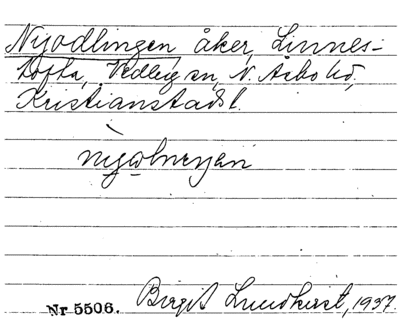 Nyodlingen, åker, Linnes-
tofta, Vedby sn, N. Åsbo hd,
Kristianstads l.
Nr 5506. Birgit Lundkvist, 1937.